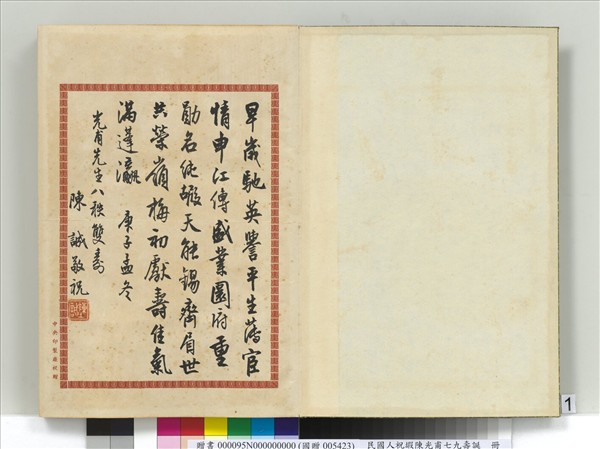 早歲馳英譽平生薄宦
情申江傳盛業圜府重
勛名純嘏天能錫齊眉世
共榮嶺梅初獻壽佳氣
滿蓬瀛 庚子孟冬
光甫先生八秩雙壽
陳誠敬祝
中央印製廠敬贈
1
贈書 000095N000000000 (國贈 005423) 民國人祝嘏陳光甫七九壽誕 冊